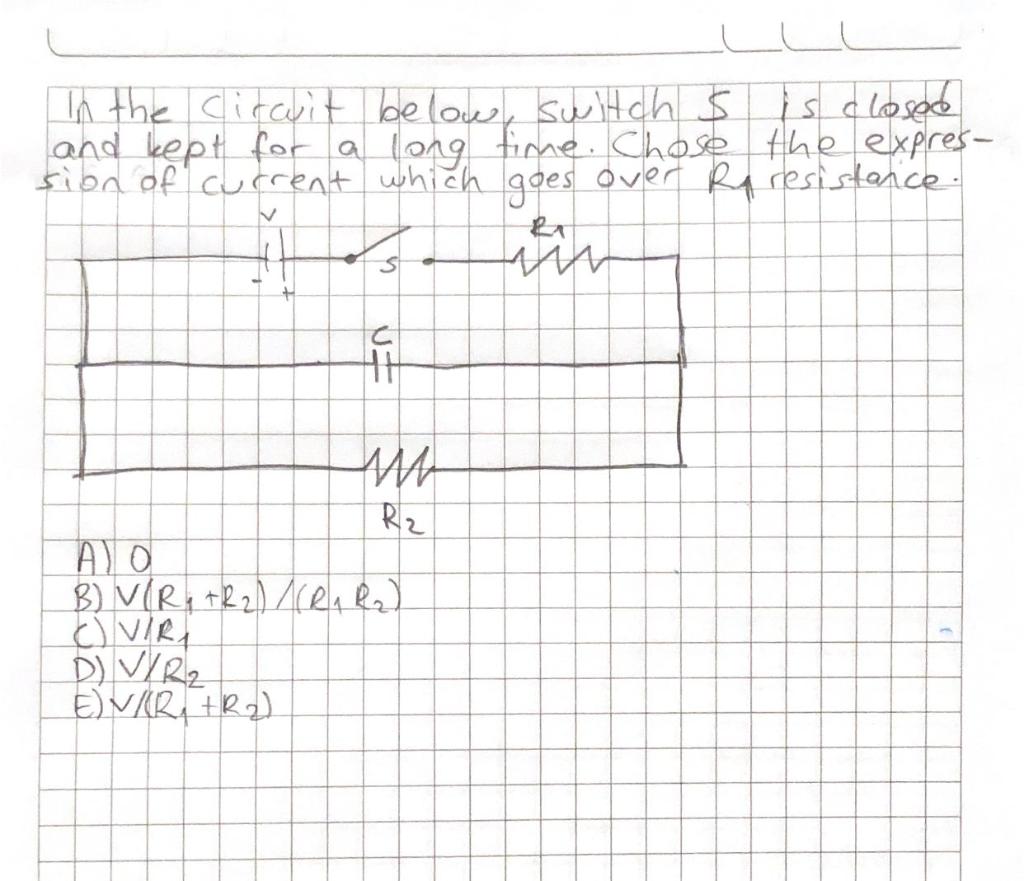 In the circuit below, switch S is closed
and kept for a long time. Chose the expres-
sion of current which goes over R1 resistance.
V
R1
S
- +
C
R2
A) 0
B) V(R1+R2)/(R1R2)
C) V/R1
D) V/R2
E) V/(R1+R2)